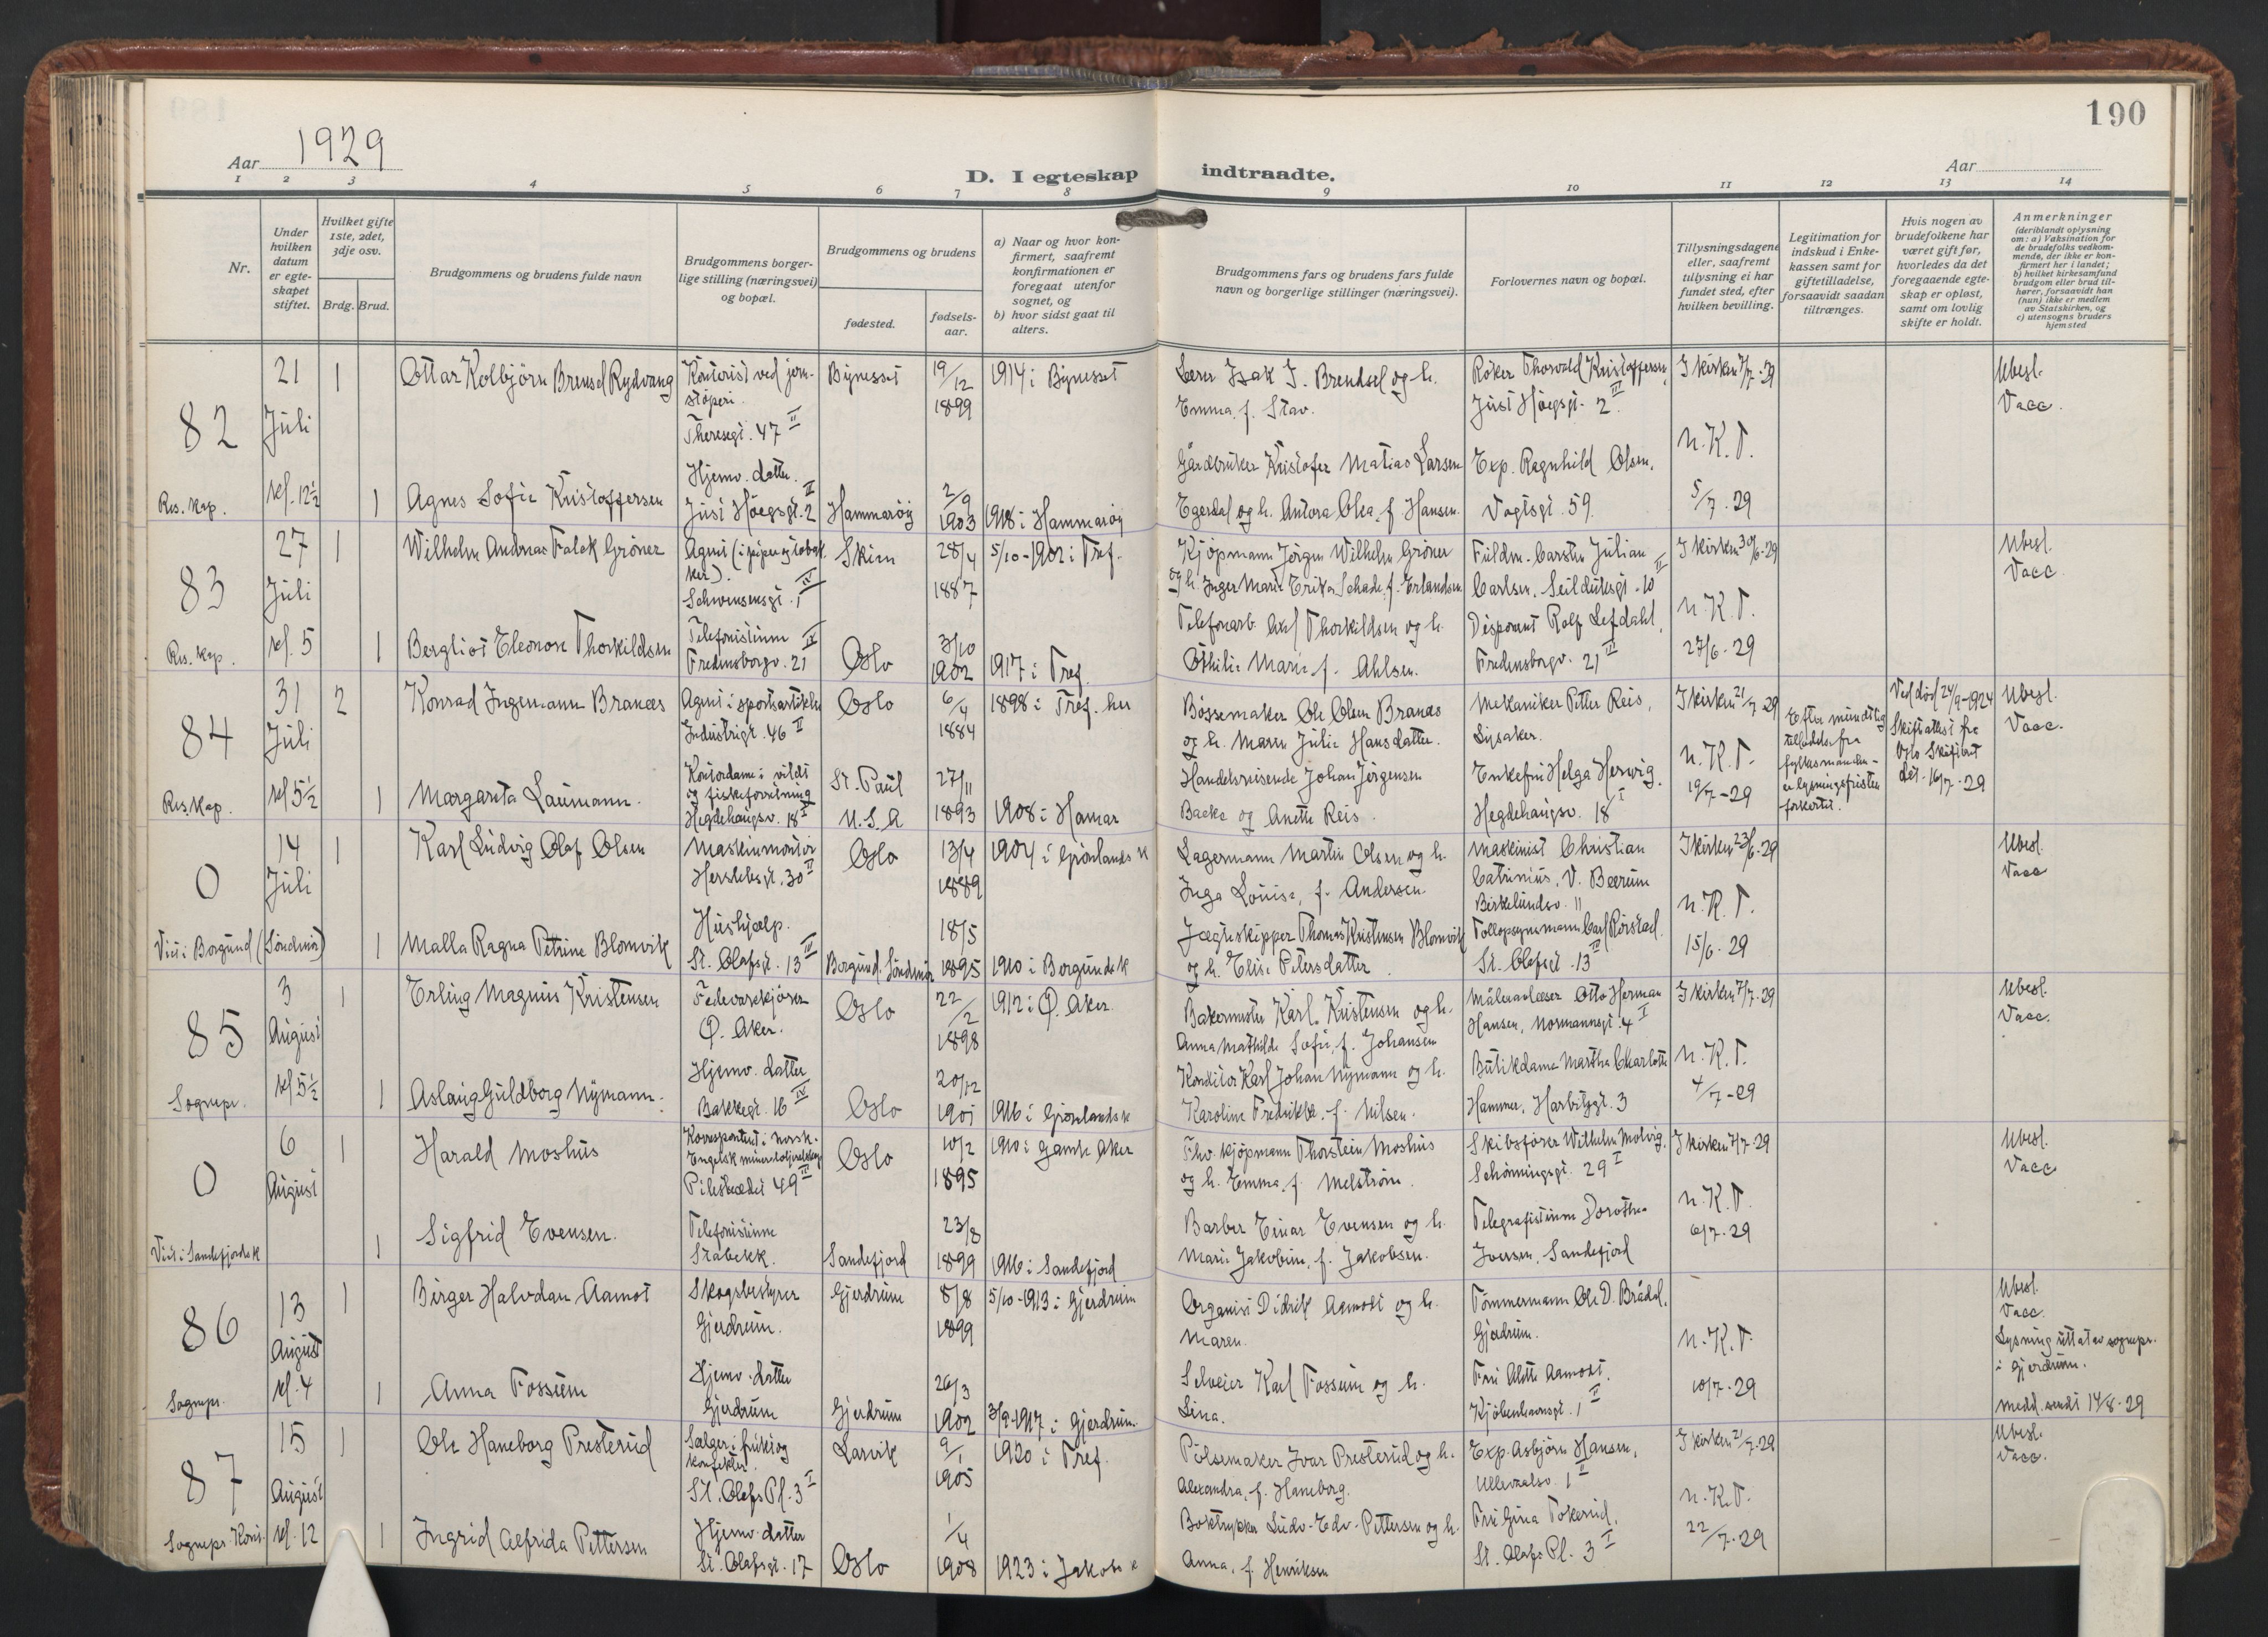 190
Aar 1929
D. I egteskap indtraadte.
Aar
1 2 3 4 5 6 7 8 9 10 11 12 13 14
Nr.
Under hvilken datum er egteskapet stiftet.
Hvilket gifte 1ste, 2det, 3dje osv.
Brdg. Brud.
Brudgommens og brudens fulde navn
Brudgommens borgerlige stilling (næringsvei) og bopæl.
Brudgommens og brudens
fødested.
fødselsaar.
a) Naar og hvor konfirmert, saafremt konfirmationen er foregaat utenfor sognet, og
b) hvor sidst gaat til alters.
Brudgommens fars og brudens fars fulde navn og borgerlige stillinger (næringsvei).
Forlovernes navn og bopæl.
Tillysningsdagene eller, saafremt tillysning ei har fundet sted, efter hvilken bevilling.
Legitimation for indskud i Enkekassen samt for giftetilladelse, forsaavidt saadan tiltrænges.
Hvis nogen av brudefolkene har været gift før, hvorledes da det foregaaende egteskap er opløst, samt om lovlig skifte er holdt.
Anmerkninger (deriblandt oplysning om: a) Vaksination for de brudefolks vedkommende, der ikke er konfirmert her i landet; b) hvilket kirkesamfund brudgom eller brud tilhører, forsaavidt han (hun) ikke er medlem av Statskirken, og c) utensogns bruders hjemsted
82
21 Juli kl. 12½
Res. kap.
1 Ottar Kolbjörn Brensel Rydvang
Kontorist ved jernstöperi. Theresegt. 47 II
Bynesset
19/12 1899
1914 i Bynesset
Lærer Isak J. Brendsel og h. Emma, f. Stav.
Röker Thorvald Kristoffersen, Just Höegsgt. 2 III
I kirken 7/7-29
Ubesl. Vacc.
1 Agnes Sofie Kristoffersen
Hjemv. datter. Just Höegsgt. 2 II
Hammaröy
2/9 1903
1918 i Hammaröy
Gårdbruker Kristofer Matias Larsen Egerdal og h. Antora Olea, f. Hansen.
Exp. Ragnhild Olsen, Vogtsgt 59.
N.K.T. 5/7-29
83
27 Juli kl. 5
Res. kap.
1 Wilhelm Andreas Falck Gröner
Schwensensgt. 1 IV
Skien
28/4 1887
5/10-1902 i Tref.
Kjöpmann Jörgen Wilhelm Gröner og h. Inger Marie Erika Schade, f. Erlandsen
Fuldm. Carsten Julian Carlsen, Seilduksgt. 10 II
I kirken 30/6-29
Ubesl. Vacc
1 Bergliot Eleonore Thorkildsen
Telefonistinne Fredensborgv. 21 IV
Oslo
3/10 1902
1917 i Tref.
Telefonarb. Axel Thorkildsen og h. Othilie Marie f. Ahlsen.
Disponent Rolf Lefdahl, Fredensborgv. 21 III
N.K.T. 27/6-29
84
31 Juli kl 5½
Res. kap.
2 Konrad Ingemann Branæs
Agent i sportsartikler Industrigt. 46 II
Oslo
6/4 1884
1898 i Tref. her
Bössemaker Ole Olsen Branæs og h. Maren Julie Hansdatter.
Mekaniker Petter Reis, Lysaker.
I kirken 21/7-29
Efter mundtlig tilladelse fra fylkesmanden er lysningsfristen forkortet.
Ved död 24/9-1924 Skifteattest fra Oslo Skifteret dat. 16/7-29
Ubesl. Vacc.
1 Margareta Laumann.
Kontordame i vildt og fiskeforretning Hegdehaugsv. 18 I
St. Paul U.S.A
27/11 1893
1908 i Hamar
Handelsreisende Johan Jörgensen Backe og Anette Reis.
Enkefru Helga Herwig, Hegdehaugsv. 18 I
N.K.T. 19/7-29
0
14 Juli
Viet i Borgund (Söndmör)
1 Karl Ludvig Olaf Olsen
Maskinmontör Herslebsgt. 30 II
Oslo
13/4 1889
1904 i Grönlands k
Lagermann Martin Olsen og h. Inga Louise, f. Andersen
Maskinist Christian Catrinius, V. Bærum Birkelundsv. 11
I kirken 23/6-29
Ubesl. Vacc
1 Malla Ragna Petrine Blomvik
Hushjælp. St. Olafsgt. 13 IV
Borgund. Söndmör
18/5 1895
1910 i Borgunds k
Jægteskipper Thomas Kristensen Blomvik og h. Elise Petersdatter.
Tollopsynsmann Carl Rörstad. St. Olafsgt 13 IV
N.K.T. 15/6-29
85
3 August kl 5½
Sognepr.
1 Erling Magnus Kristensen
Ö. Aker.
Oslo
22/2 1898
1912 i Ö. Aker.
Bakermester Karl Kristensen og h. Anna Mathilde Sofie, f. Johansen
Måleravlæser Otto Herman Hansen, Normannsgt. 4 I
I kirken 7/7-29
Ubesl. Vacc.
1 Aslaug Guldborg Nymann.
Hjemv. datter Bakkegt. 16 IV
Oslo
20/12 1901
1916 i Grönlands k
Konditor Karl Johan Nymann og h. Karoline Fredrikke f. Nilsen.
Butikdame Martha Charlotte Hammer, Harbitzgt. 3
N.K.T. 4/7-29
0
6 August
Viet i Sandefjords k
1 Harald Moshus
Pilestrædet 49 III
Oslo
10/2 1895
1910 i Gamle Aker
Fhv. kjöpmann Thorstein Moshus og h. Emma, f. Melström.
Skibsförer Wilhelm Molvig, Schönningsgt. 29 I
I kirken 7/7-29
Ubesl. Vacc
1 Sigfrid Evensen.
Telefonistinne Stabekk.
Sandefjord
23/8 1899
1916 i Sandefjord
Barber Einar Evensen og h. Marie Jakobine, f. Jakobsen.
Telegrafistinne Dorothea Iversen, Sandefjord
N.K.T. 6/7-29
86
13 August kl. 4
Sognepr.
1 Birger Halvdan Aamot
Skogbestyrer Gjerdrum.
Gjerdrum
8/8 1899
5/10-1913 i Gjerdrum
Organist Didrik Aamodt og h. Maren.
Tömmermann Ole D. Brådal, Gjerdrum.
Ubesl. Vacc.
Lysning uttatt av sognepr. i Gjerdrum.
Medd. sendt 14/8-29
1 Anna Fossum
Hjemv. datter Gjerdrum
Gjerdrum
26/3 1902
3/9-1917 i Gjerdrum.
Selveier Karl Fossum og h. Lina.
Fru Alette Aamodt, Kjöbenhavnsgt. 1 II
N.K.T. 10/7-29
87
15 August kl. 12
Sognepr. Koni.
1 Ole Haneborg Presterud
Sælger i frukt og konfekter. St. Olafs Pl. 3 I
Larvik
9/1 1905
1920 i Tref.
Pölsemaker Ivar Presterud og h. Alexandra, f. Haneborg.
Exp. Asbjörn Hansen, Ullevaalsv. 1 II
I kirken 21/7-29
Ubesl. Vacc.
1 Ingrid Alfrida Pettersen
Hjemv. datter St. Olafsgt. 17
Oslo
1/4 1908
1923 i Jakobs k
Boktrykker Ludv. Edv. Pettersen og h. Anna, f. Henriksen
Fru Gina Tokerud, St. Olafs Pl. 3 I
N.K.T. 22/7-29